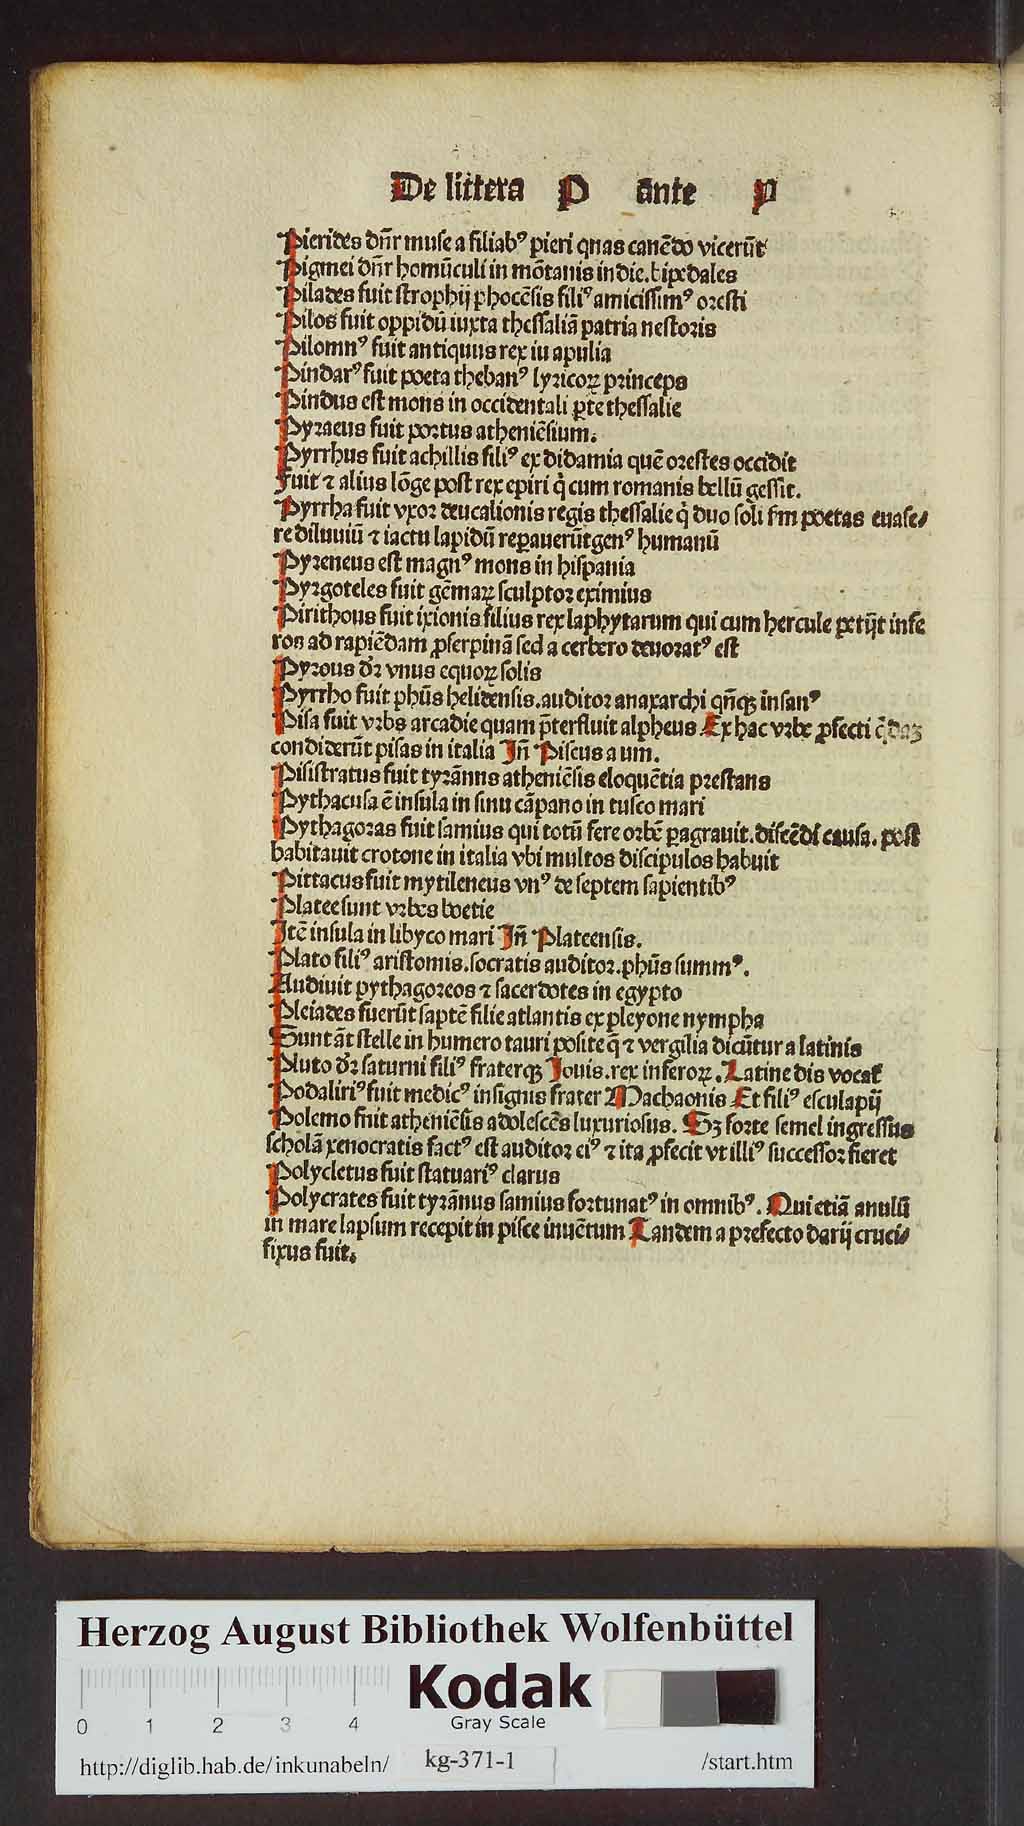 De littera P ante P
Pierides dn̄r muse a filiabꝰ pieri qnas canēdo vicerūt
Pigmei dn̄r homūculi in mōtanis indie. bipedales
Pilades fuit strophij phocēsis filiꝰ amicissimꝰ oresti
Pilos fuit oppidū iuxta thessaliā patria nestoris
Pilomnꝰ fuit antiquus rex iu apulia
Pindarꝰ fuit poeta thebanꝰ lyricoꝝ princeps
Pindus est mons in occidentali ꝑte thessalie
Pyraeus fuit portus atheniēsium.
Pyrrhus fuit achillis filiꝰ ex didamia quē orestes occidit
Fuit ⁊ alius lōge post rex epiri q̇ cum romanis bellū gessit.
Pyrrha fuit vxor deucalionis regis thessalie q̇ duo soli fm poetas euase/
re diluuiū ⁊ iactu lapidū repauerūtgenꝰ humanū
Pyreneus est magnꝰ mons in hispania
Pyrgoteles fuit gēmaꝝ sculptor eximius
Pirithous fuit ixionis filius rex laphytarum qui cum hercule petijt infe
ros ad rapiēdam ꝓserpinā sed a cerbero deuoratꝰ est
Pyrous dr̄ vnus equoꝝ solis
Pyrrho fuit phūs helidensis. auditor anaxarchi qn̄qꝫ insanꝰ
Pisa fuit vrbs arcadie quam p̄terfluit alpheus Ex hac vrbe ꝓfecti q̄daꝫ
condiderūt pisas in italia Jn̄ Piscus a um.
Pisistratus fuit tyrānns atheniēsis eloquētia prestans
Pythacusa ē insula in sinu cāpano in tusco mari
Pythagoras fuit samius qui totū fere orbē ꝑagrauit. discēdi causa. post
habitauit crotone in italia vbi multos discipulos habuit
Pittacus fuit mytileneus vnꝰ de septem sapientibꝰ
Platee sunt vrbes boetie
Jtē insula in libyco mari Jn̄ Plateensis.
Plato filiꝰ aristomis. socratis auditor. phūs summꝰ.
Audiuit pythagoreos ⁊ sacerdotes in egypto
Pleiades fuerūt saptē filie atlantis ex pleyone nympha
Sunt āt stelle in humero tauri posite q̄ ⁊ vergilia dicūtur a latinis
Pluto dr̄ saturni filiꝰ fraterqꝫ Jouis. rex inferoꝝ. Latine dis vocat̉
Podaliriꝰ fuit medicꝰ insignis frater Machaonis Et filiꝰ esculapij
Polemo fnit atheniēsis adolescēs luxuriosus. Sꝫ forte semel ingressus
scholā xenocratis factꝰ est auditor eiꝰ ⁊ ita ꝓfecit vt illiꝰ successor fieret
Polycletus fuit statuariꝰ clarus
Polycrates fuit tyrānus samius fortunatꝰ in omnibꝰ. Qui etiā anulū
in mare lapsum recepit in pisce inuētum Tandem a prefecto darij cruci/
fixus fuit.
Herzog August Bibliothek Wolfenbüttel
Kodak
Gray Scale
0 1 2 3 4
http://diglib.hab.de/inkunabeln/ kg-371-1 /start.htm